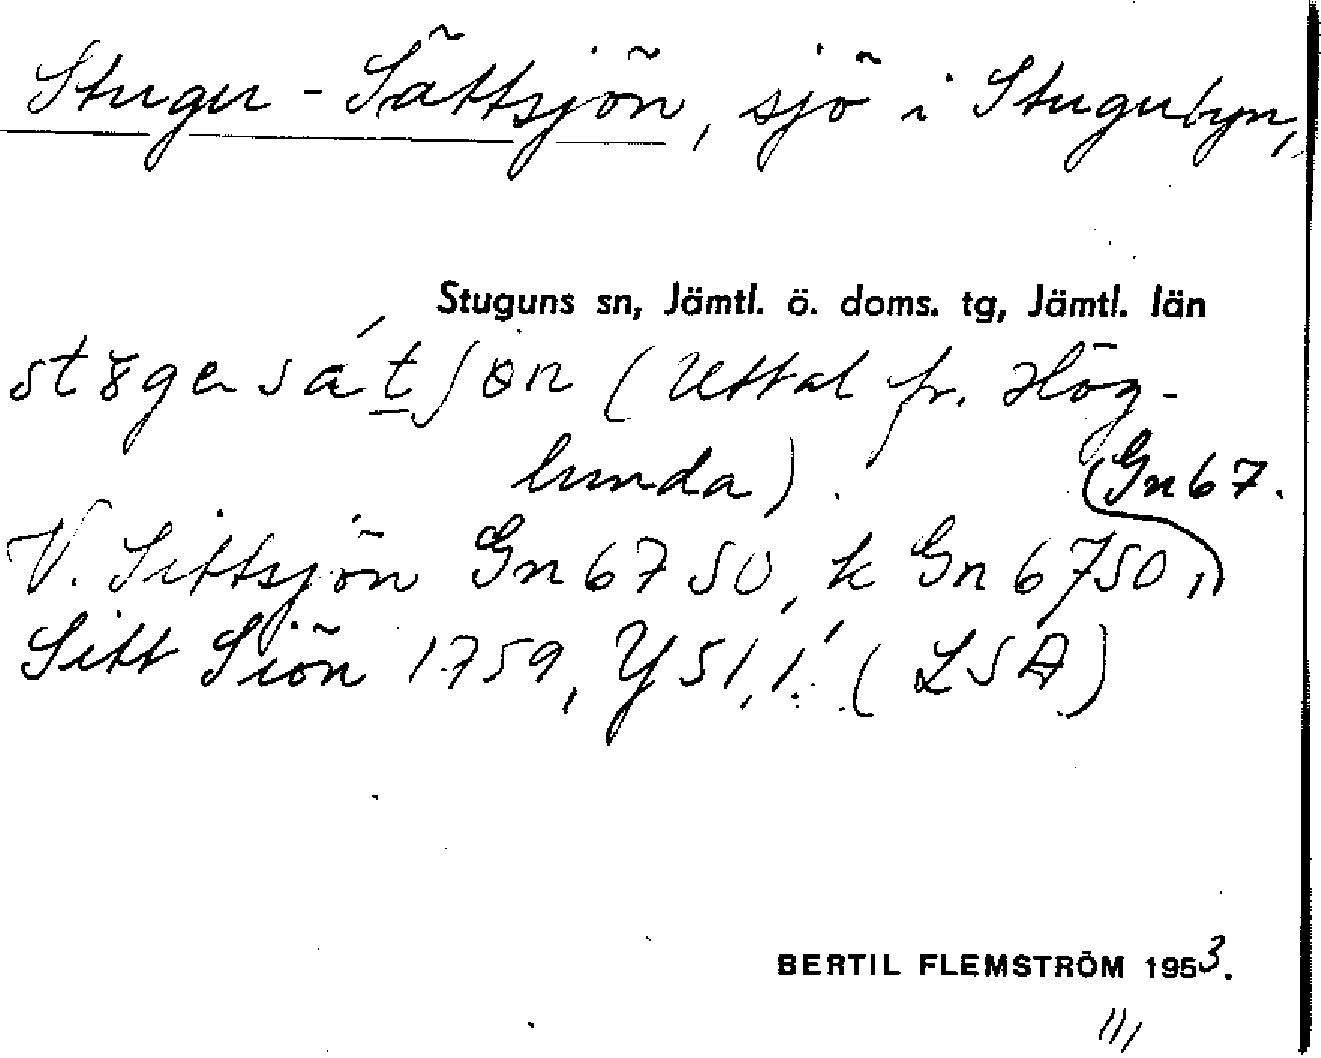 Stugu-Sättsjön, sjö i Stugubyn,
Stuguns sn, Jämtl. ö. doms. tg, Jämtl. län
(Uttal fr. Hög-
lunda). (Gn67.
V. Sittsjön Gn6750, k Gn6750,)
Sitt Siön 1759, Y51,1: (LSA)
BERTIL FLEMSTRÖM 1953.